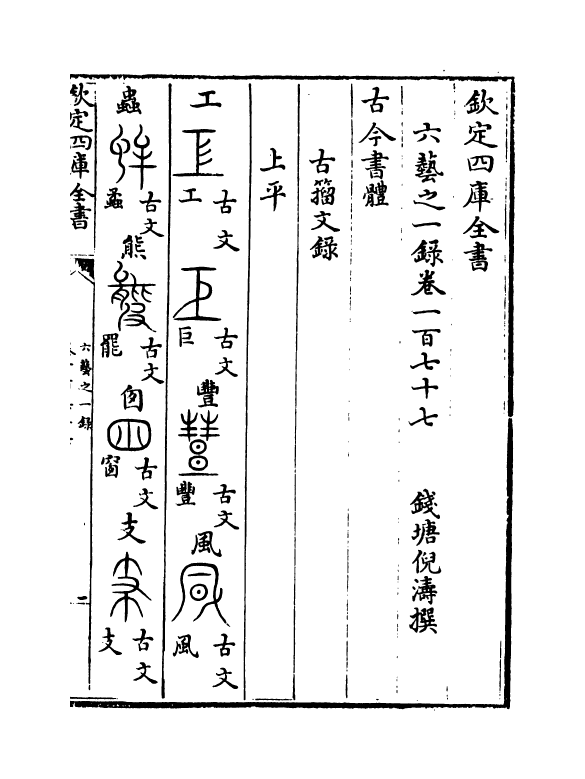 欽定四庫全書
六藝之一錄卷一百七十七 錢塘倪濤撰
古今書體
古籀文錄
上平
工 古文工 古文巨 豐 古文豐 風 古文風
蟲 古文蟊 熊 古文羆 囪 古文窗 支 古文支
欽定四庫全書 六藝之一錄